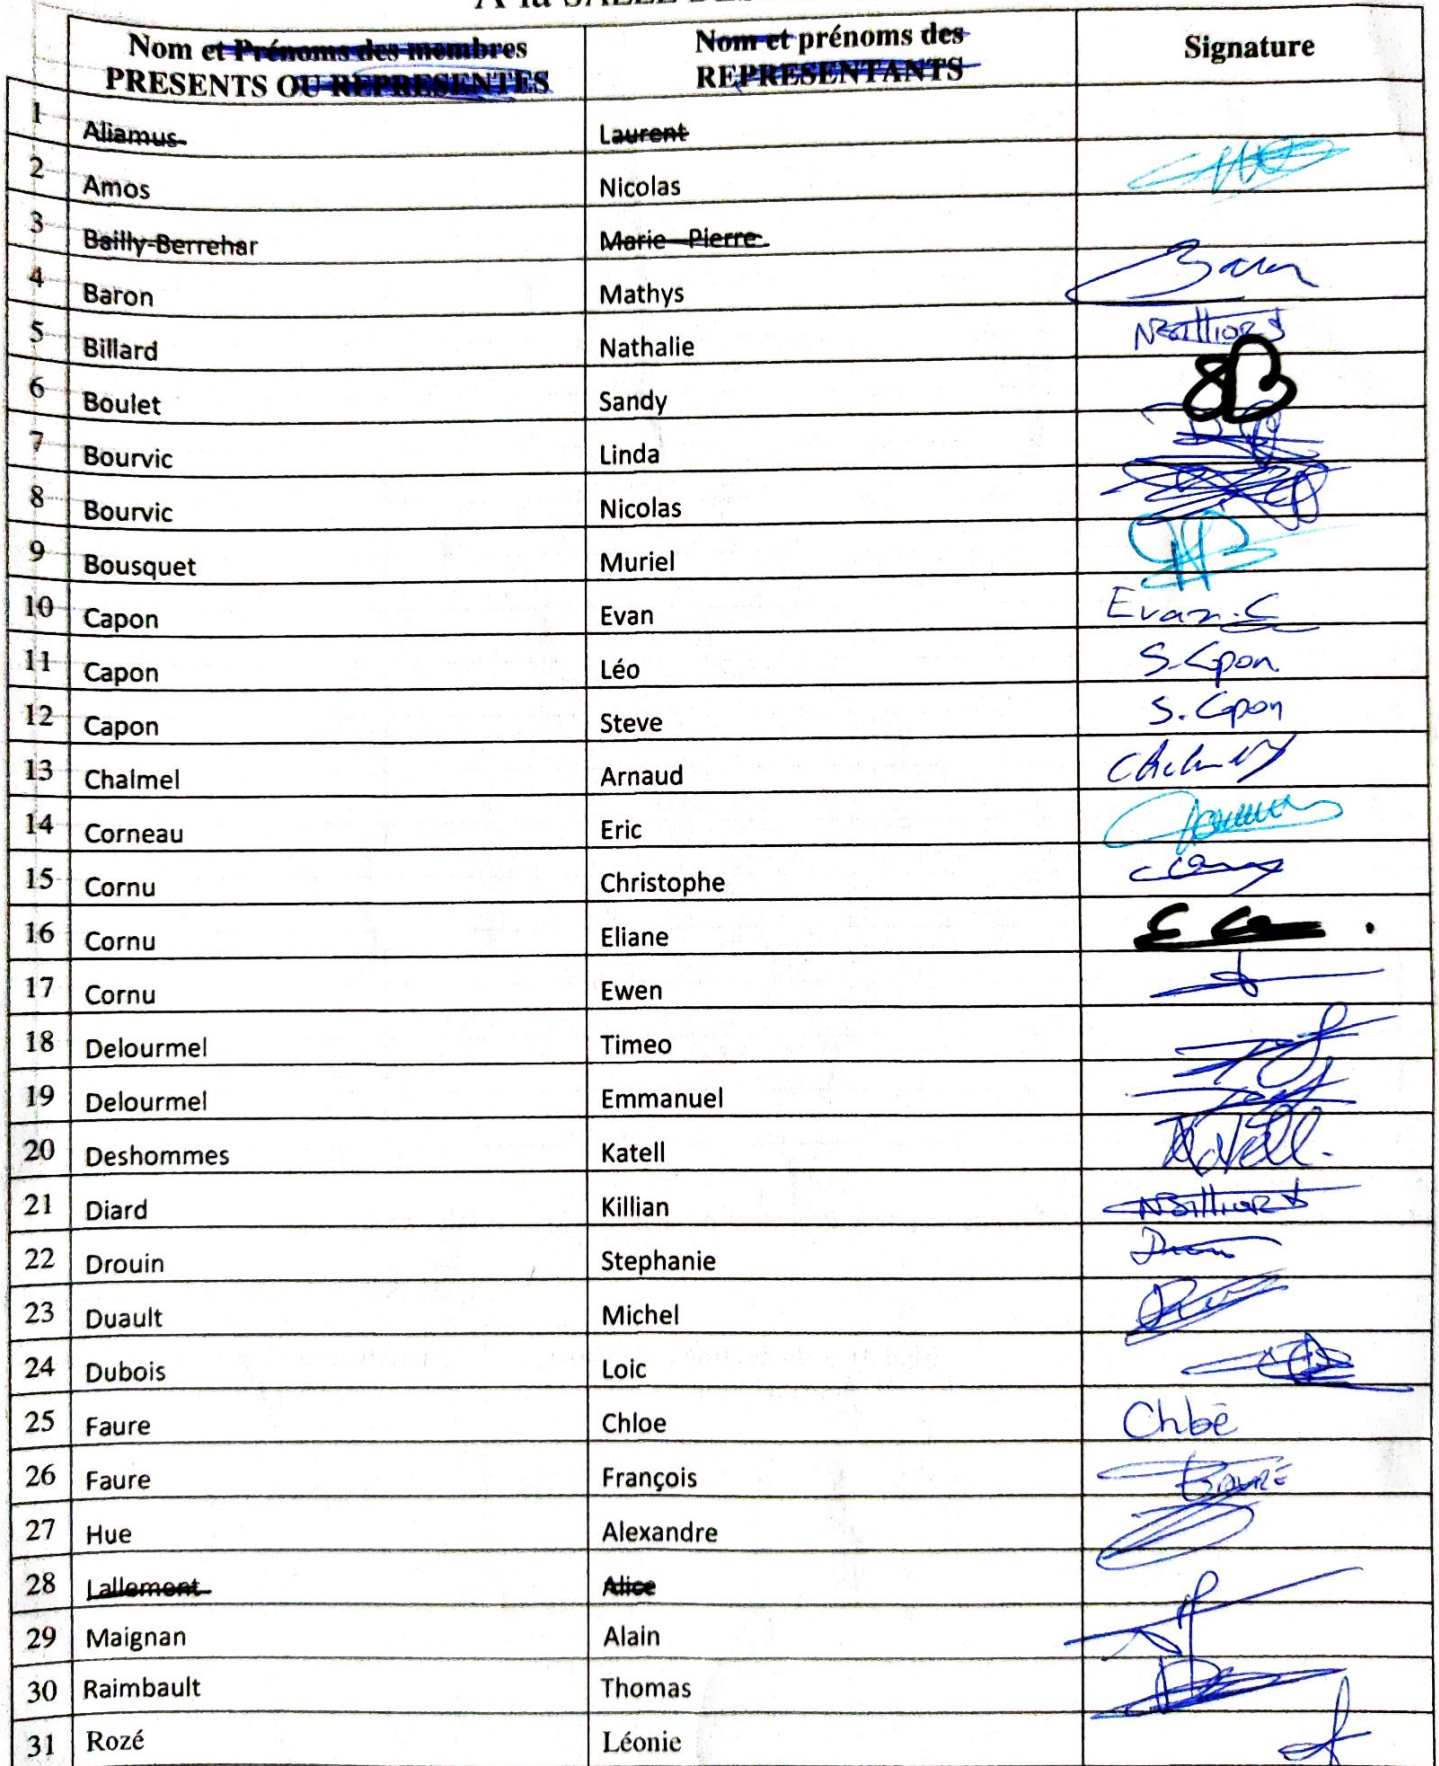 A la SALLE DES
Nom et Prénoms des membres
PRESENTS OU REPRESENTES
Nom et prénoms des
REPRESENTANTS
Signature
1 Aliamus Laurent
2 Amos Nicolas
3 Bailly-Berrehar Marie Pierre
4 Baron Mathys Baron
5 Billard Nathalie NBillard
6 Boulet Sandy SB
7 Bourvic Linda
8 Bourvic Nicolas
9 Bousquet Muriel
10 Capon Evan Evan.C
11 Capon Léo S.Capon
12 Capon Steve S.Capon
13 Chalmel Arnaud
14 Corneau Eric
15 Cornu Christophe
16 Cornu Eliane
17 Cornu Ewen
18 Delourmel Timeo
19 Delourmel Emmanuel
20 Deshommes Katell Katell.
21 Diard Killian NBillard
22 Drouin Stephanie
23 Duault Michel
24 Dubois Loic
25 Faure Chloe Chloé
26 Faure François FAURE
27 Hue Alexandre
28 Lallement Alice
29 Maignan Alain
30 Raimbault Thomas
31 Rozé Léonie